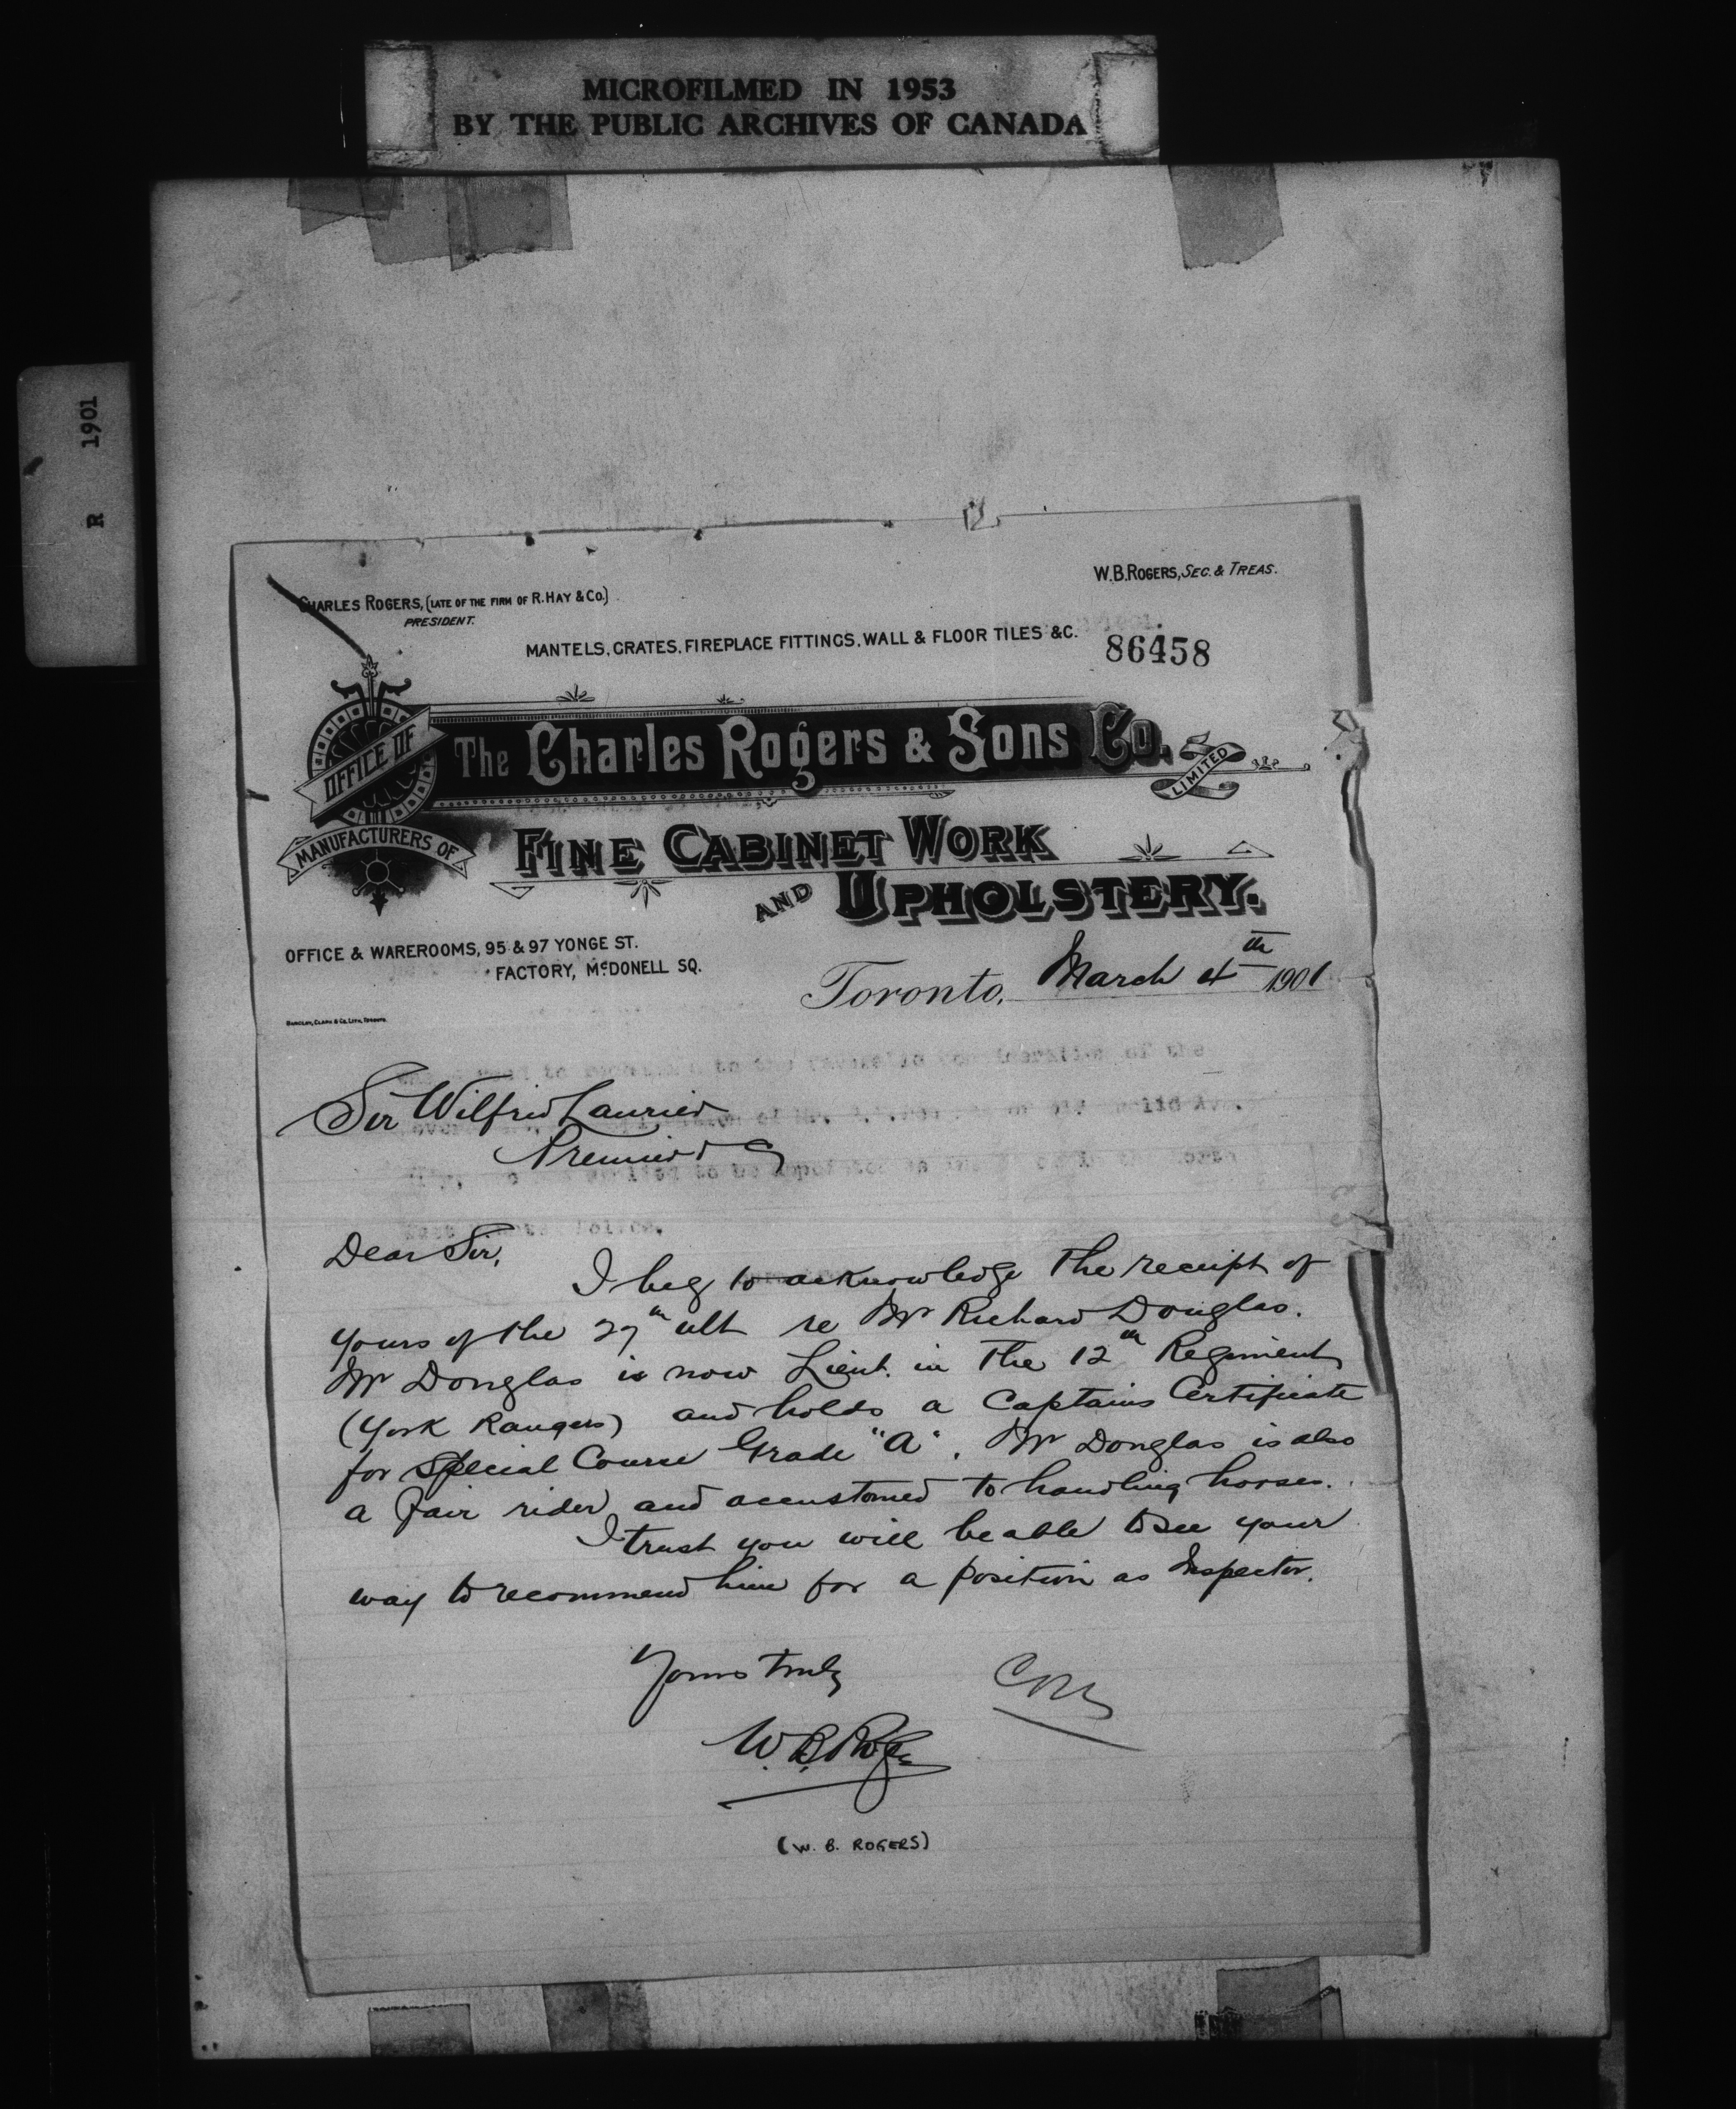 MICROFILMED IN 1953
BY THE PUBLIC ARCHIVES OF CANADA
R 1901
W.B.ROGERS, SEC. & TREAS.
CHARLES ROGERS, (LATE OF THE FIRM OF R.HAY & CO.)
PRESIDENT.
MANTELS, GRATES, FIREPLACE FITTINGS, WALL & FLOOR TILES &C.
86458
OFFICE OF
The Charles Rogers & Sons Co.
LIMITED
MANUFACTURERS OF
FINE CABINET WORK
AND UPHOLSTERY.
OFFICE & WAREROOMS, 95 & 97 YONGE ST.
FACTORY, McDONELL SQ.
Toronto, March 4th 1901
Barclay, Clark & Co. Lith. Toronto.
Sir Wilfrid Laurier
Premier
Dear Sir,
I beg to acknowledge the receipt of
yours of the 27th ult re Mr Richard Douglas.
Mr Douglas is now Lieut. in the 12th Regiment
(York Rangers) and holds a Captains Certificate
for Special Course Grade "A". Mr Douglas is also
a fair rider and accustomed to handling horses.
I trust you will be able to see your
way to recommend him for a position as Inspector.
Yours truly
W. B. Rogers
(W. B. ROGERS)